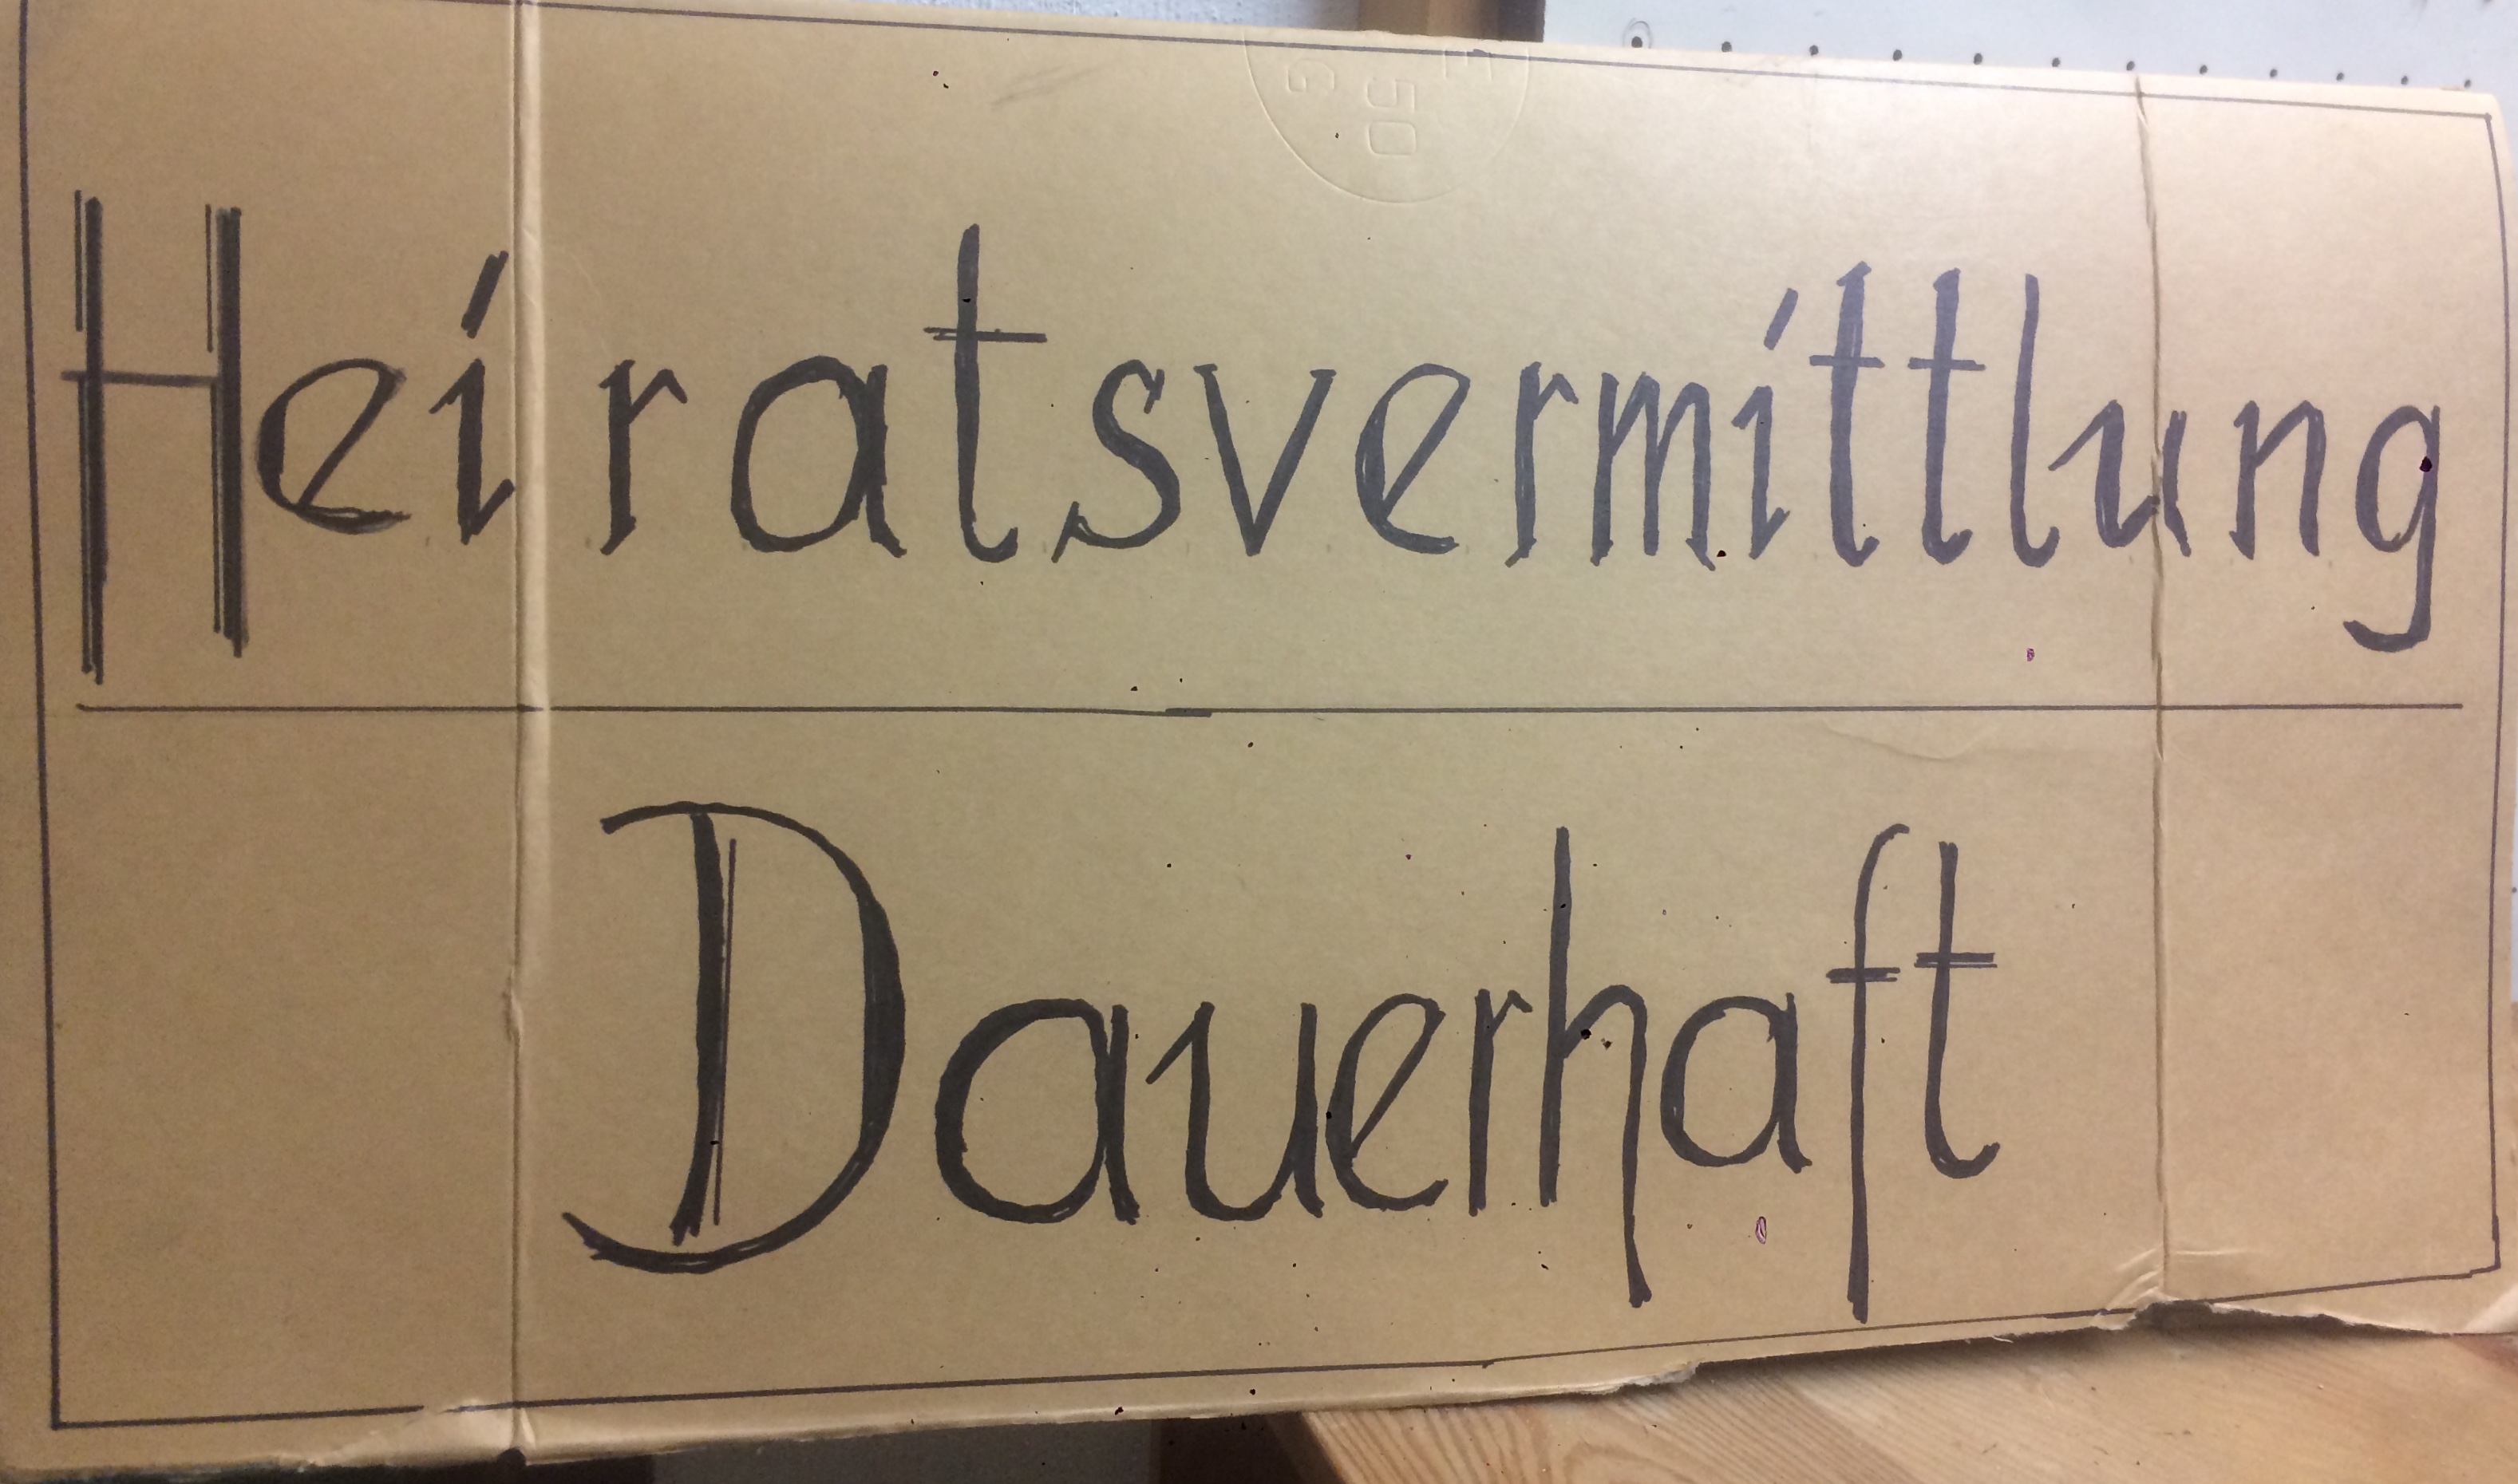 Heiratsvermittlung
Dauerhaft